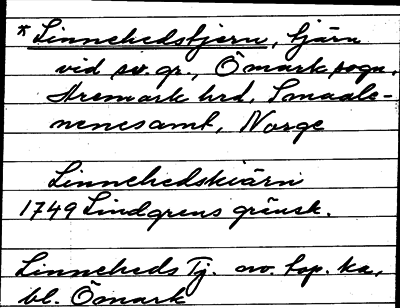 * Linnehedstjern, tjärn
vid sv. gr., Ömark sogn,
Aremark hrd, Smaale-
nenesamt, Norge
Linnehedskiärn
1749 Lindgrens gränsk.
Linneheds Tj. nv. top. ka,
bl. Ömark